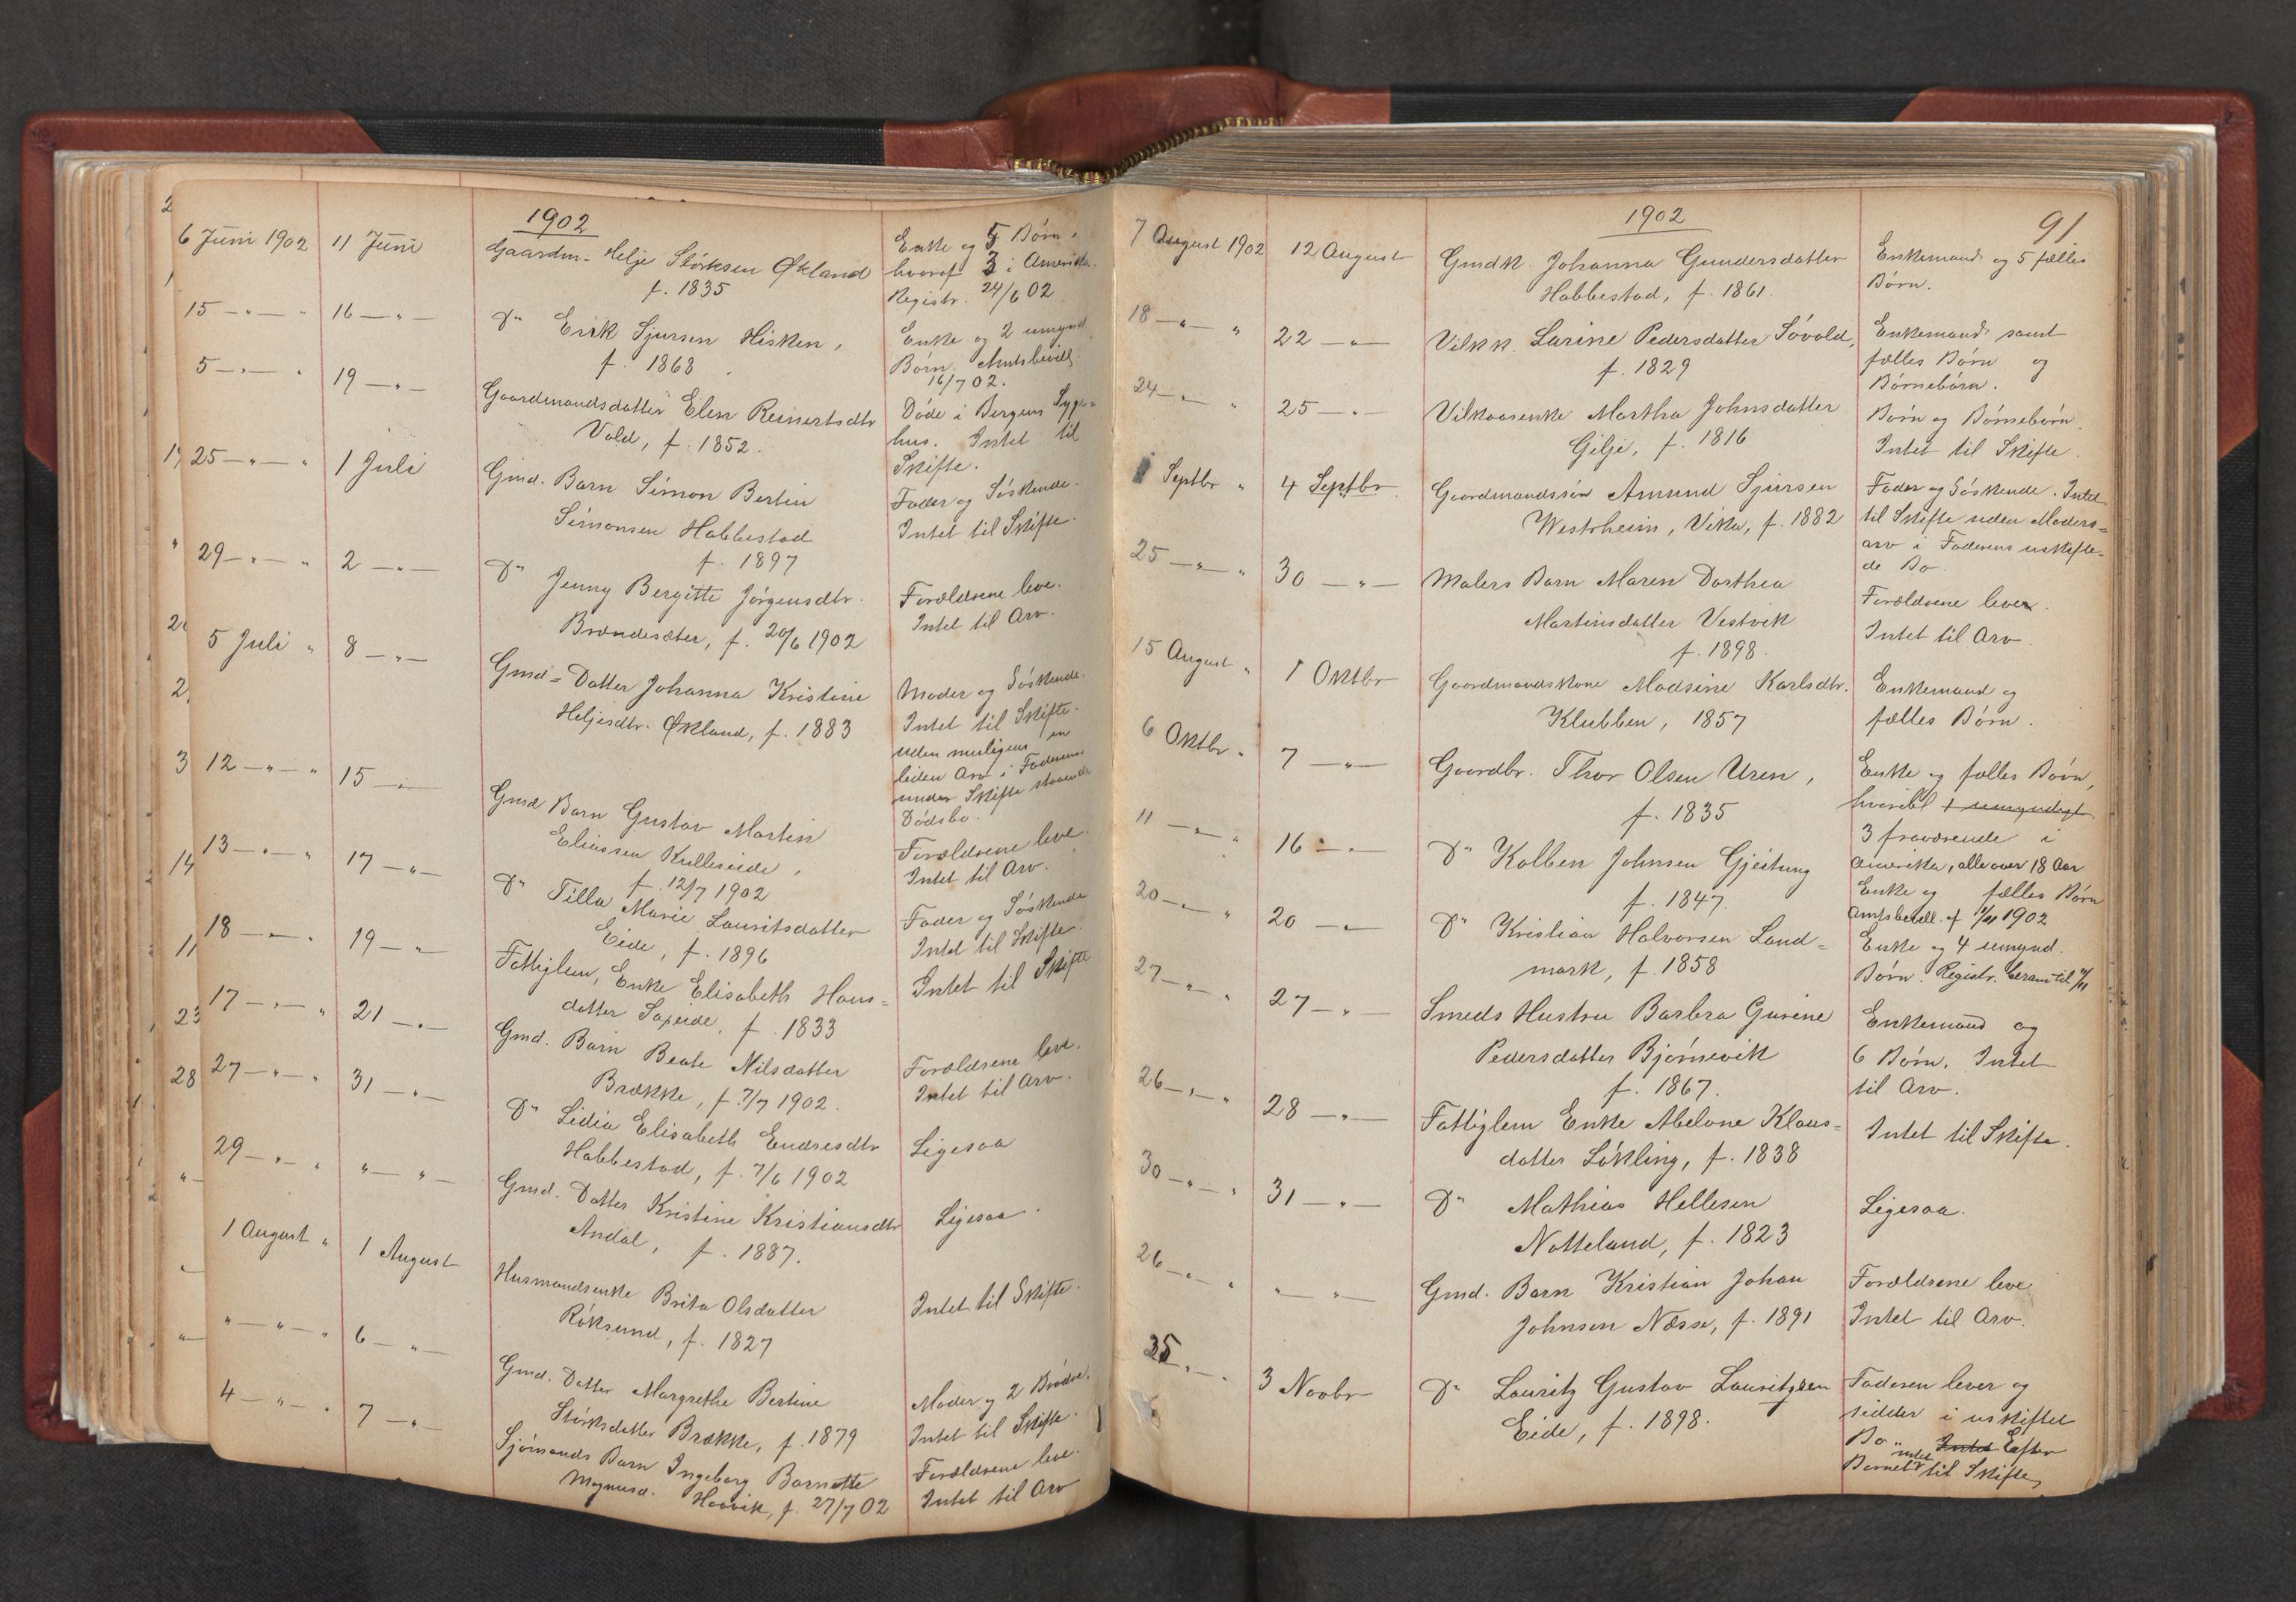 1902
6 Juni 1902 11 Juni Gaardm. Helje Störksen Økland Enke og 5 Børn,
f. 1835 hvoraf 3 i Amerika.
Registr. 24/6 02
15 — " — " 16 — " — Do Erik Sjursen Hisken, Enke og 2 umynd.
f. 1868 Børn. Amtsbevill.
16/7 02.
5 — " — " 19 — " — Gaardmandsdatter Elen Reinertsdtr Døde i Bergens Syge=
Vold, f. 1852. hus. Intet til
Skifte.
25 — " — " 1 Juli Gmd. Barn Simon Bertin Fader og Søskende.
Simonsen Habbestad Intet til Skifte.
f. 1897
29 — " — " 2 — " — Do Jenny Bergitte Jørgensdtr. Forældrene leve.
Brandesæter, f. 20/6 1902 Intet til Arv.
5 Juli " 8 — " — Gmd= Datter Johanna Kristine Moder og Søskende.
Heljesdtr. Økland, f. 1883 Intet til Skifte.
uden muligens en
liden Arv i Faderens
under Skifte staaende
Dødsbo.
12 — " — " 15 — " — Gmd Barn Gustav Martin Forældrene leve.
Eliassen Kulleseide, Intet til Arv.
f. 12/7 1902
13 — " — " 17 — " — Do Tilla Marie Lauritsdatter Fader og Søskende
Eide, f. 1896 Intet til Skifte.
18 — " — " 19 — " — Fattiglem, Enke Elisabeth Hans= Intet til Skifte
datter Sapeide, f. 1833
17 — " — " 21 — " — Gmd. Barn Beate Nilsdatter Forældrene leve.
Brække, f. 7/7 1902. Intet til Arv.
27 — " — " 31 — " — Do Lidia Elisabeth Endresdtr Ligesaa
Habbestad, f. 7/6 1902
29 — " — " " — " — Gmd. Datter Kristine Kristiansdtr Ligesaa.
Andal, f. 1887.
1 August " 1 August Husmandsenke Brita Olsdatter Intet til Skifte.
Röksund, f. 1827
" — " — " 6 — " — Gmd. Datter Margrethe Bertine Moder og 2 Brødre.
Störksdatter Brække, f. 1879 Intet til Skifte.
4 — " — " 7 — " — Sjömands Barn Ingeborg Barnette Forældrene leve.
Magnusd. Haavik, f. 27/7 02 Intet til Arv
1902 91
7 August 1902 12 August Gmdk. Johanna Gundersdatter Enkemand og 5 fælles
Habbestad, f. 1861. Børn.
18 — " — " 22 — " — Vilkk. Larine Pedersdatter Sövold, Enkemand samt
f. 1829 fælles Børn og
Børnebørn.
24 — " — " 25 — " — Vilkaarsenke Martha Johnsdatter Børn og Børnebørn.
Gilje, f. 1816 Intet til Skifte.
1 Septbr " 4 Septbr. Gaardmandssøn Amund Sjursen Fader og Søskende. Intet
Westrheim, Vika, f. 1882 til Skifte uden Moders=
arv i Faderens uskifte=
de Bo.
25 — " — " 30 — " — Malers Barn Maren Dorthea Forældrene lever.
Martinsdatter Vestvik Intet til Arv.
f. 1898.
15 August " 1 Oktbr Gaardmandskone Madsine Karlsdtr. Enkemand og
Klubben, 1857 fælles Børn.
6 Oktbr. " 7 — " — Gaardbr. Thor Olsen Uren, Enke og fælles Børn,
f. 1835 hvoribl. 1 umyndigt
3 fraværende i
Amerika, alle over 18 Aar
11 — " — " 16 — " — Do Kolben Johnsen Gjeitung Enke og fælles Børn
f. 1847. Amtsbevill. af 1/11 1902
20 — " — " 20 — " — Do Kristian Halvorsen Land= Enke og 4 umynd.
mark, f. 1858 Børn. Registr. beram. til 4/11
27 — " — " 27 — " — Smeds Hustru Barbra Gurine Enkemand og
Pedersdatter Bjørnevik 6 Børn. Intet
f. 1867. til Arv.
26 — " — " 28 — " — Fattiglem Enke Abelone Klaus= Intet til Skifte.
datter Lökling, f. 1838
30 — " — " 31 — " — Do Mathias Hellesen Ligesaa.
Notteland, f. 1823
26 — " — " " — " — Gmd. Barn Kristian Johan Forældrene leve
Johnsen Næsse, f. 1891 Intet til Arv.
25 — " — " 3 Novbr Do Lauritz Gustav Lauritzsen Faderen lever og
Eide, f. 1898. sidder i uskiftet
Bo. Intet Efter
Barnet intet til Skifte